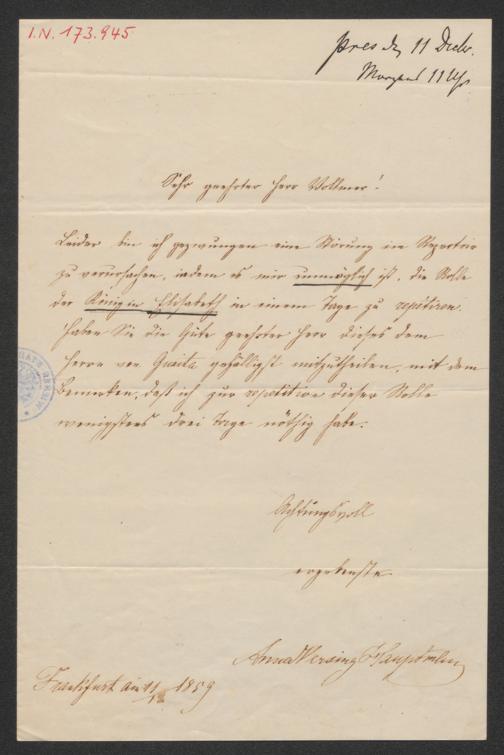 I.N. 173.945
pres d. 11 Decbr.
Morgens 11 Uhr
Sehr geehrter Herr Vollmer!
Leider bin ich gezwungen eine Störung im Repertoir
zu verursachen, indem es mir unmöglich ist, die Rolle
der Königin Elisabeth in einem Tage zu repitiren.
Haben Sie die Güte geehrter Herr dieses dem
Herrn von Guaita gefälligst mitzutheilen, mit dem
Bemerken, daß ich zur repetition dieser Rolle
wenigstens drei Tage nöthig habe.
Achtungsvoll
ergebenste
Anna Versing Hauptmann
Frankfurt am 11/12 1859